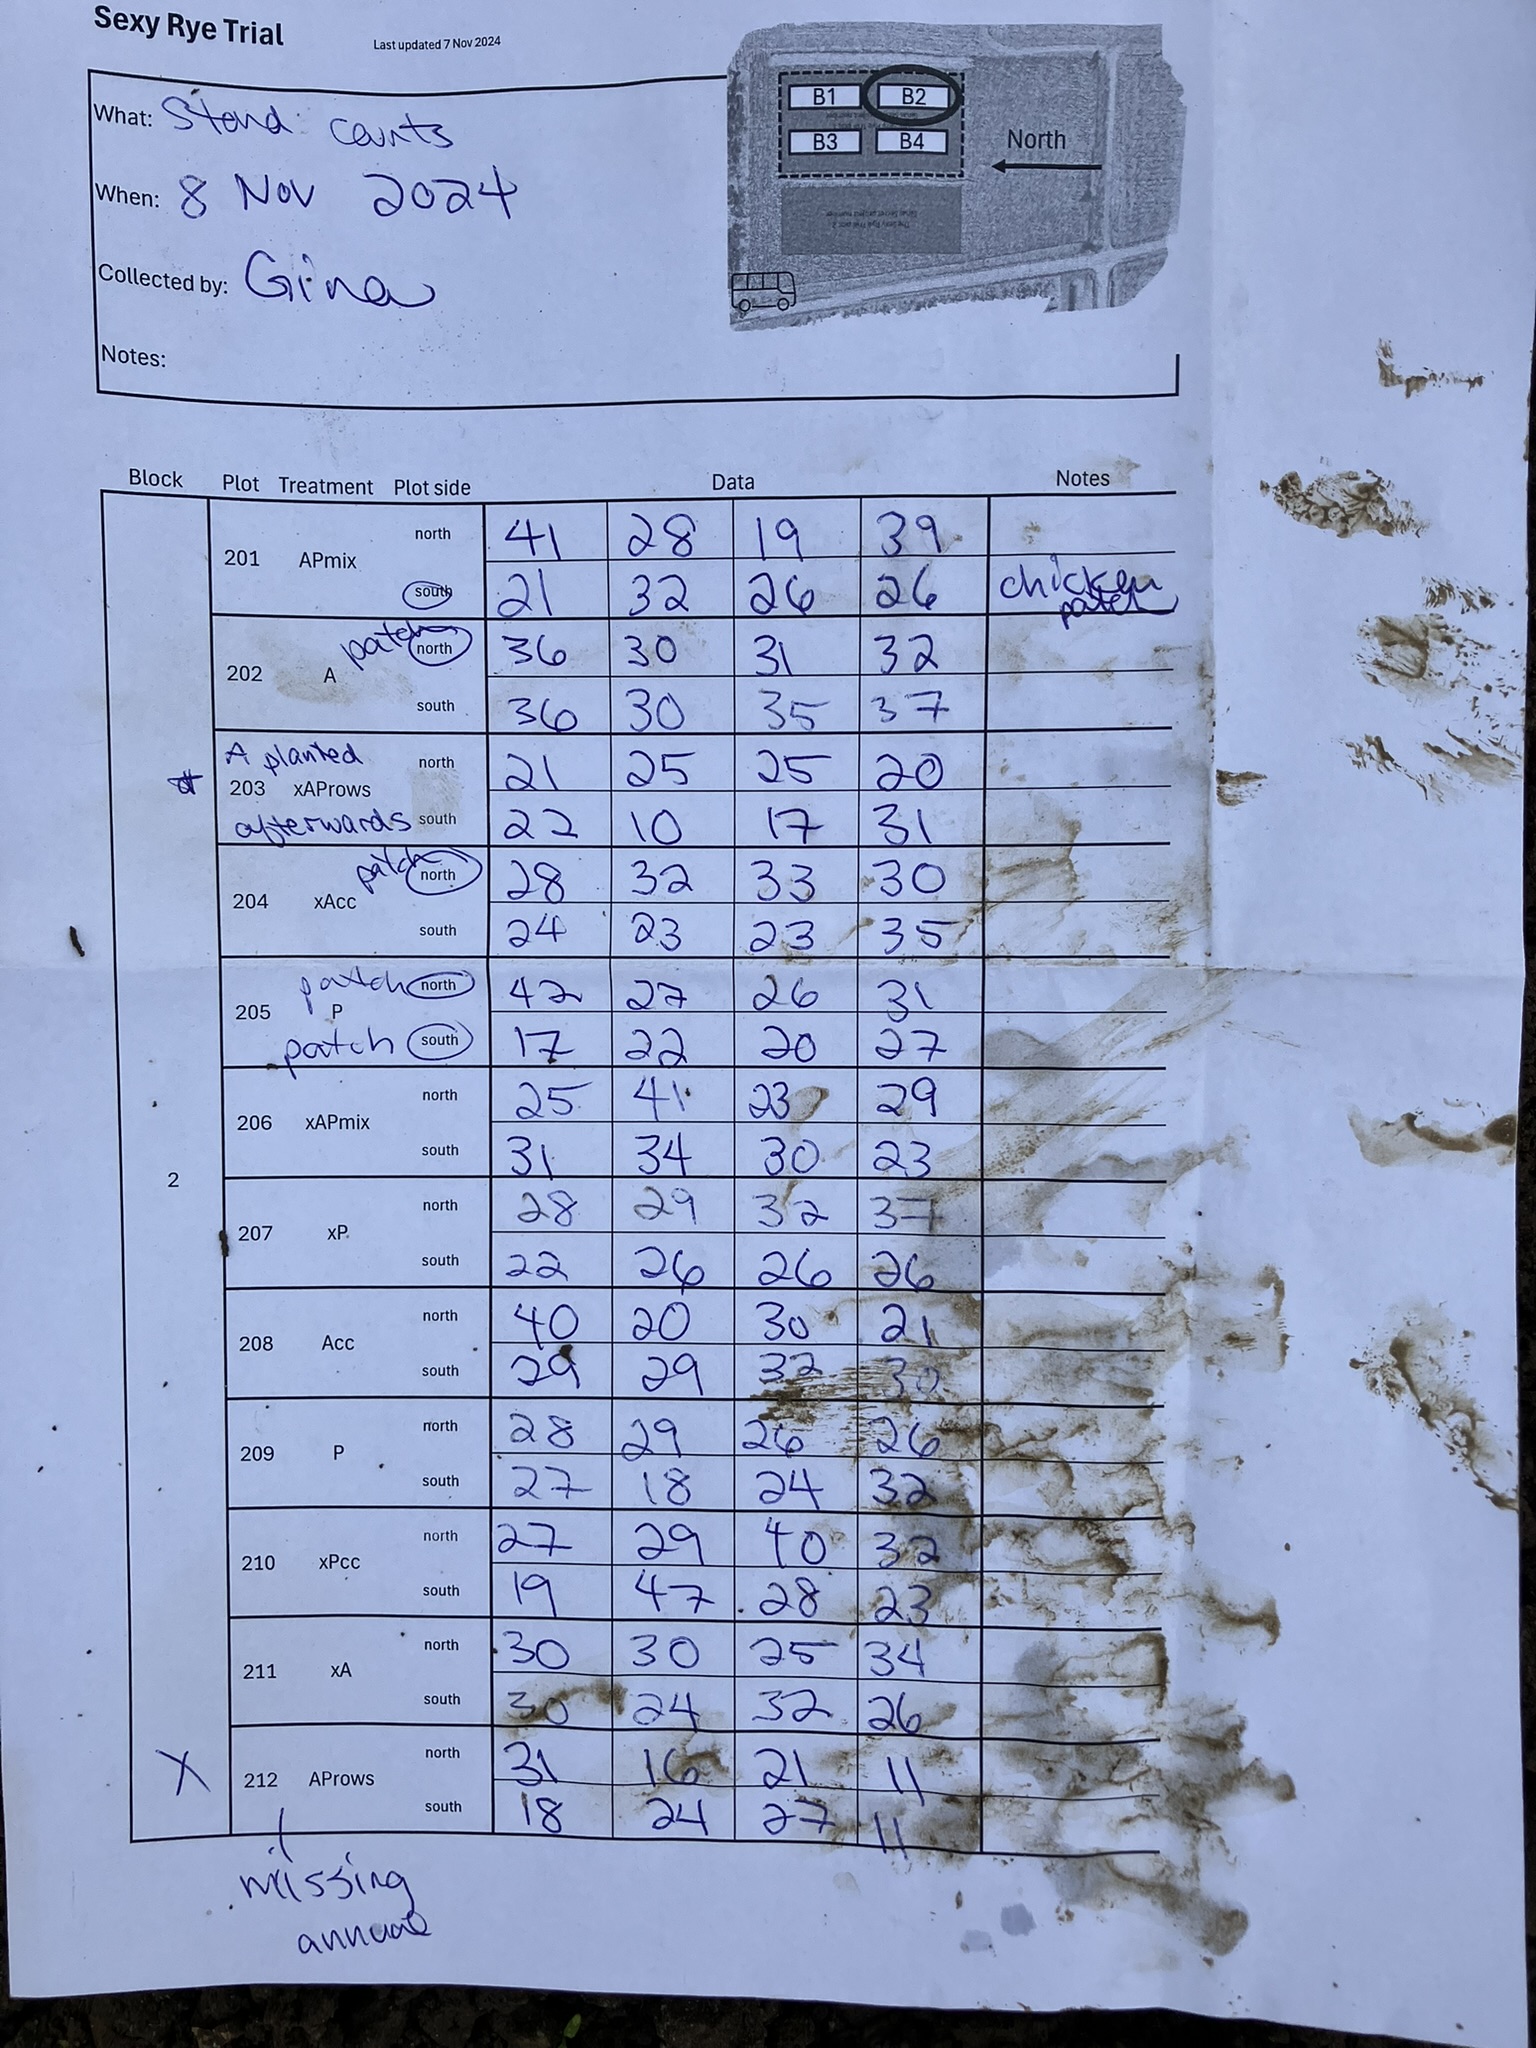 Sexy Rye Trial
Last updated 7 Nov 2024
What: Stand counts
When: 8 Nov 2024
Collected by: Gina
Notes:
B1 B2
B3 B4
North
Block Plot Treatment Plot side Data Notes
2
201 APmix
north 41 28 19 39
south 21 32 26 26 chicken patch
202 A
patch north 36 30 31 32
south 36 30 35 37
A planted
203 xAProws
afterwards
north 21 25 25 20
south 22 10 17 31
204 xAcc
patch north 28 32 33 30
south 24 23 23 35
205 P
patch north 42 27 26 31
patch south 17 22 20 27
206 xAPmix
north 25 41 23 29
south 31 34 30 23
207 xP
north 28 29 32 37
south 22 26 26 26
208 Acc
north 40 20 30 21
south 29 29 32 30
209 P
north 28 29 26 26
south 27 18 24 32
210 xPcc
north 27 29 40 32
south 19 47 28 23
211 xA
north 30 30 25 34
south 30 24 32 26
X 212 AProws
north 31 16 21 11
south 18 24 27 11
missing
annual